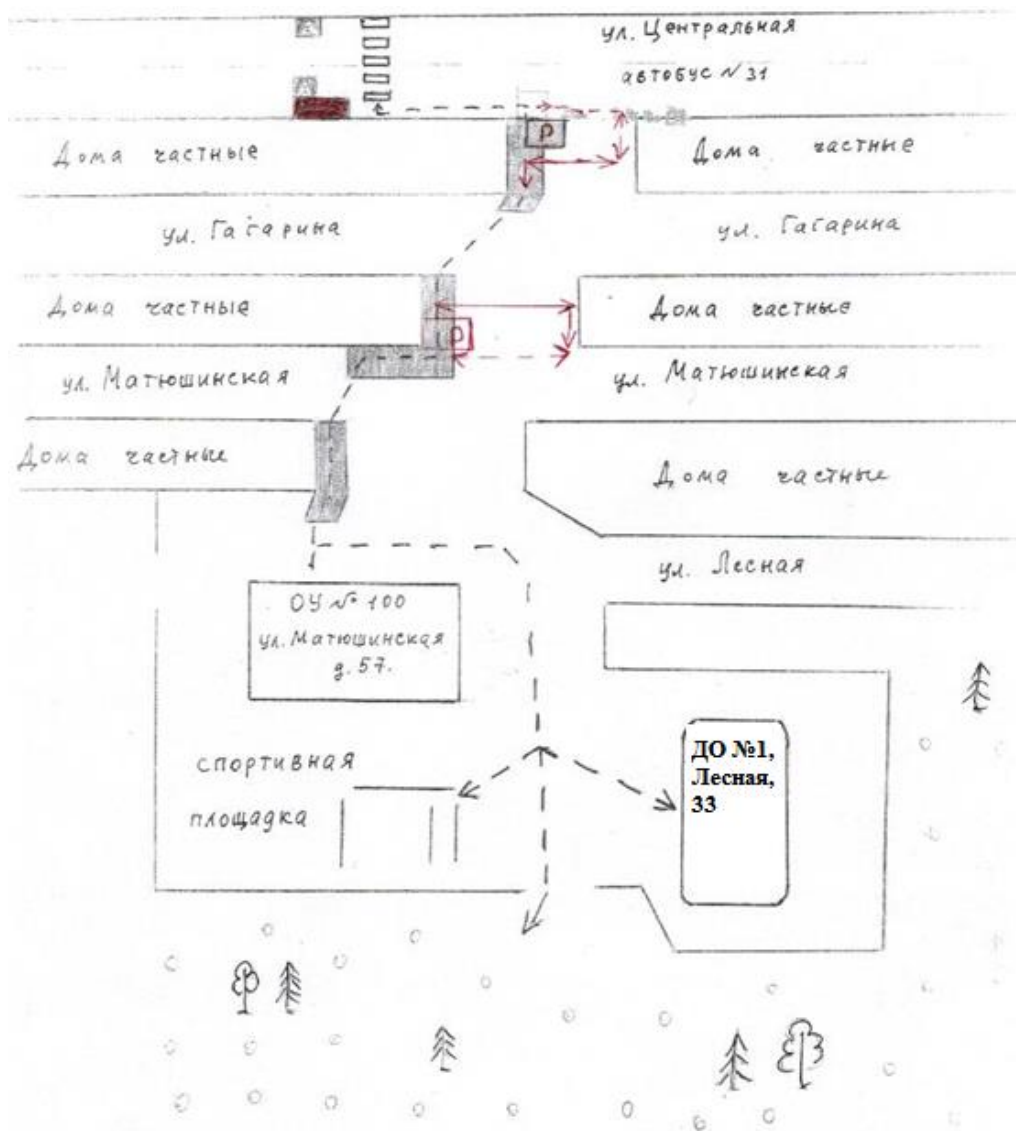 ул. Центральная
автобус № 31
А
А
Р
Дома частные
Дома частные
ул. Гагарина
ул. Гагарина
Дома частные
Р
Дома частные
ул. Матюшинская
ул. Матюшинская
Дома частные
Дома частные
ул. Лесная
ОУ № 100
ул. Матюшинская
д. 57.
спортивная
площадка
ДО №1,
Лесная,
33